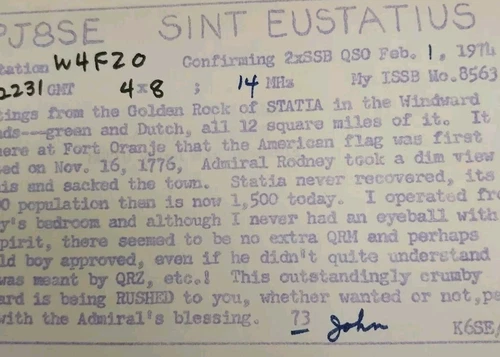 PJ8SE SINT EUSTATIUS
tation W4FZO Confirming 2xSSB QSO Feb. 1, 1971
2231GMT 4x8 ; 14 MHz My ISSB No.8563
tings from the Golden Rock of STATIA in the Windward
nds---green and Dutch, all 12 square miles of it. It
here at Fort Oranje that the American flag was first
ed on Nov. 16, 1776, Admiral Rodney took a dim view
is and sacked the town. Statia never recovered, its
0 population then is now 1,500 today. I operated fr
y's bedroom and although I never had an eyeball with
pirit, there seemed to be no extra QRM and perhaps
ld boy approved, even if he didn't quite understand
was meant by QRZ, etc.! This outstandingly crumby
ard is being RUSHED to you, whether wanted or not, pe
with the Admiral's blessing. 73 John K6SE/